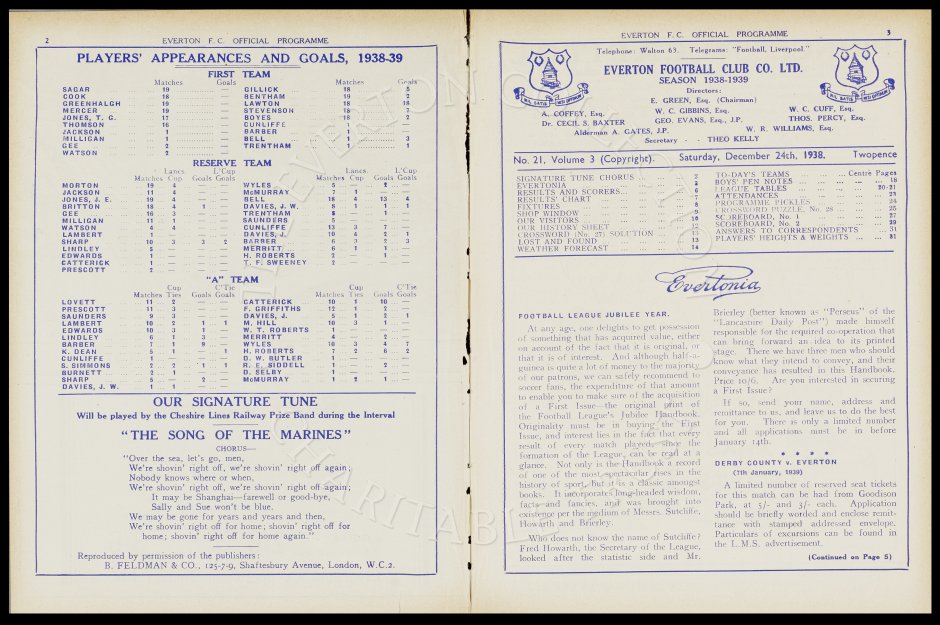 2
EVERTON F.C. OFFICIAL PROGRAMME
PLAYERS' APPEARANCES AND GOALS, 1938-39
FIRST TEAM
Matches Goals Matches Goals
SAGAR 19 — GILLICK 18 5
COOK 18 — BENTHAM 18 2
GREENHALGH 19 — LAWTON 18 18
MERCER 19 — STEVENSON 16 7
JONES, T. G. 17 — BOYES 18 2
THOMSON 16 — CUNLIFFE 1 —
JACKSON 1 — BARBER 1 —
MILLIGAN 1 — BELL 1 3
GEE 2 — TRENTHAM 1 1
WATSON 2 —
RESERVE TEAM
Lancs L'Cup Lancs L'Cup
Matches Cup Goals Goals Matches Cup Goals Goals
MORTON 19 4 — — WYLES 5 — 2 —
JACKSON 11 4 — — McMURRAY 1 — — —
JONES, J. E. 19 4 — — BELL 18 4 13 4
BRITTON 18 4 1 — DAVIES, J. W. 8 1 1 1
GEE 16 3 — — TRENTHAM 8 — 1 —
MILLIGAN 11 1 — — SAUNDERS 5 1 — —
WATSON 4 4 — — CUNLIFFE 13 3 7 —
LAMBERT 1 — — — DAVIES, J. 10 4 2 1
SHARP 10 3 3 2 BARBER 6 3 2 3
LINDLEY 5 — — — MERRITT 6 1 1 —
EDWARDS 1 — — — H. ROBERTS 2 — 1 —
CATTERICK 1 — — — T. F. SWEENEY 2 — — —
PRESCOTT 2 — — —
"A" TEAM
Cup C'Tie Cup C'Tie
Matches Ties Goals Goals Matches Ties Goals Goals
LOVETT 11 2 — — CATTERICK 10 1 10 —
PRESCOTT 11 3 — — F. GRIFFITHS 12 1 2 —
SAUNDERS 9 3 — — DAVIES, J. 5 1 2 1
LAMBERT 10 2 1 1 M. HILL 10 3 1 —
EDWARDS 10 3 1 — W. T. ROBERTS 1 — — —
LINDLEY 6 1 3 — MERRITT 4 — 2 —
BARBER 7 — 9 — WYLES 10 3 4 7
K. DEAN 5 1 — 1 H. ROBERTS 7 2 6 2
CUNLIFFE 1 — — — D. W. BUTLER 1 — — —
S. SIMMONS 2 2 1 1 R. E. SIDDELL 1 — 2 —
BURNETT 2 1 — — D. SELBY 1 — — —
SHARP 5 — 2 — McMURRAY 1 2 1 —
DAVIES, J. W. 1 1 — —
OUR SIGNATURE TUNE
Will be played by the Cheshire Lines Railway Prize Band during the Interval
"THE SONG OF THE MARINES"
CHORUS—
"Over the sea, let's go, men,
We're shovin' right off, we're shovin' right off again,
Nobody knows where or when,
We're shovin' right off, we're shovin' right off again;
It may be Shanghai—farewell or good-bye,
Sally and Sue won't be blue.
We may be gone for years and years and then,
We're shovin' right off for home; shovin' right off for
home; shovin' right off for home again."
Reproduced by permission of the publishers:
B. FELDMAN & CO., 125-7-9, Shaftesbury Avenue, London, W.C.2.
EVERTON F.C. OFFICIAL PROGRAMME
3
Telephone: Walton 63. Telegrams: "Football, Liverpool."
EVERTON FOOTBALL CLUB CO. LTD.
SEASON 1938-1939
Directors:
E. GREEN, Esq. (Chairman)
A. COFFEY, Esq. W. C. GIBBINS, Esq. W. C. CUFF, Esq.
Dr. CECIL S. BAXTER GEO. EVANS, Esq., J.P. THOS. PERCY, Esq.
Alderman A. GATES, J.P. W. R. WILLIAMS, Esq.
Secretary - - THEO KELLY
NIL SATIS NISI OPTIMUM
NIL SATIS NISI OPTIMUM
No. 21, Volume 3 (Copyright). Saturday, December 24th, 1938. Twopence
SIGNATURE TUNE CHORUS 2
EVERTONIA 3
RESULTS AND SCORERS 6
RESULTS' CHART 7
FIXTURES 8
SHOP WINDOW 9
OUR VISITORS 10
OUR HISTORY SHEET 12
CROSSWORD (No. 27) SOLUTION 13
LOST AND FOUND 13
WEATHER FORECAST 14
TO-DAY'S TEAMS Centre Pages
BOYS' PEN NOTES 18
LEAGUE TABLES 20-21
ATTENDANCES 23
PROGRAMME PICKLES 24
CROSSWORD PUZZLE, No. 28 25
SCOREBOARD, No. 1 27
SCOREBOARD, No. 2 29
ANSWERS TO CORRESPONDENTS 31
PLAYERS' HEIGHTS & WEIGHTS 31
Evertonia
FOOTBALL LEAGUE JUBILEE YEAR.
At any age, one delights to get possession
of something that has acquired value, either
on account of the fact that it is original, or
that it is of interest. And although half-a-
guinea is quite a lot of money to the majority
of our patrons, we can safely recommend to
soccer fans, the expenditure of that amount
to enable you to make sure of the acquisition
of a First Issue—the original print of
the Football League's Jubilee Handbook.
Originality must be in buying the First
Issue, and interest lies in the fact that every
result of every match played, since the
formation of the League, can be read at a
glance. Not only is the Handbook a record
of one of the most spectacular rises in the
history of sport, but it is a classic amongst
books. It incorporates long-headed wisdom,
facts and fancies, and was brought into
existence per the medium of Messes. Sutcliffe,
Howarth and Brierley.
Who does not know the name of Sutcliffe?
Fred Howarth, the Secretary of the League,
looked after the statistic side and Mr.
Brierley (better known as "Perseus" of the
"Lancashire Daily Post") made himself
responsible for the required co-operation that
can bring forward an idea to its printed
stage. There we have three men who should
know what they intend to convey, and their
conveyance has resulted in this Handbook.
Price 10/6. Are you interested in securing
a First Issue?
If so, send your name, address and
remittance to us, and leave us to do the best
for you. There is only a limited number
and all applications must be in before
January 14th.
* * * *
DERBY COUNTY v. EVERTON
(7th January, 1939)
A limited number of reserved seat tickets
for this match can be had from Goodison
Park, at 5/- and 3/- each. Application
should be briefly worded and enclose remit-
tance with stamped addressed envelope.
Particulars of excursions can be found in
the L.M.S. advertisement.
(Continued on Page 5)
EVERTON
CHARITABLE